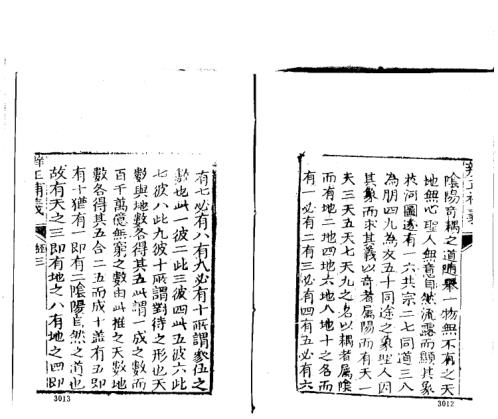 陰陽奇耦之道隨舉一物無不有之天
地無心聖人無意自然流露而顯其象
於河圖遂有一六共宗二七同道三八
為朋四九為友五十同途之象聖人因
其象而求其義以奇者屬陽而有天一
天三天五天七天九之名以耦者屬陰
而有地二地四地六地八地十之名而
有一必有二有三必有四有五必有六
3012
有七必有八有九必有十所謂參伍之
數也此一彼二此三彼四此五彼六此
七彼八此九彼十所謂對待之形也天
數與地數各得其五此謂一成之數而
百千萬億無窮之數由此推之天數地
數各得其五合二五而成十蓋有五即
有十猶有一即有二陰陽自然之道也
故有天之三即有地之八有地之四即
3013